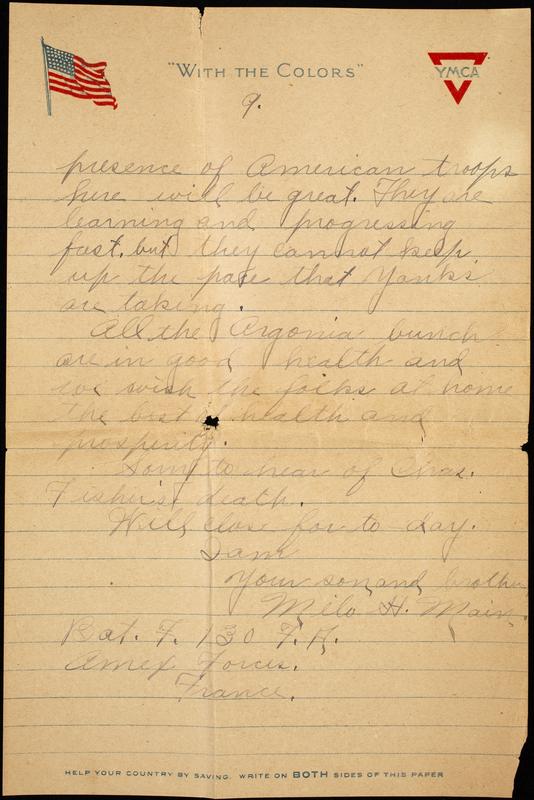 "WITH THE COLORS"
YMCA
9.
presence of American troops
here will be great. They are
learning and progressing
fast, but they cannot keep
up the pace that Yanks
are taking.
All the Argonia bunch
are in good health and
we wish the folks at home
the best of health and
prosperity.
Sorry to hear of Chas.
Fisher's death.
Will close for to day.
I am
Your son and brother
Milo H. Main.
Bat. F. 130 F. A.
Amex Forces.
France.
HELP YOUR COUNTRY BY SAVING. WRITE ON BOTH SIDES OF THIS PAPER